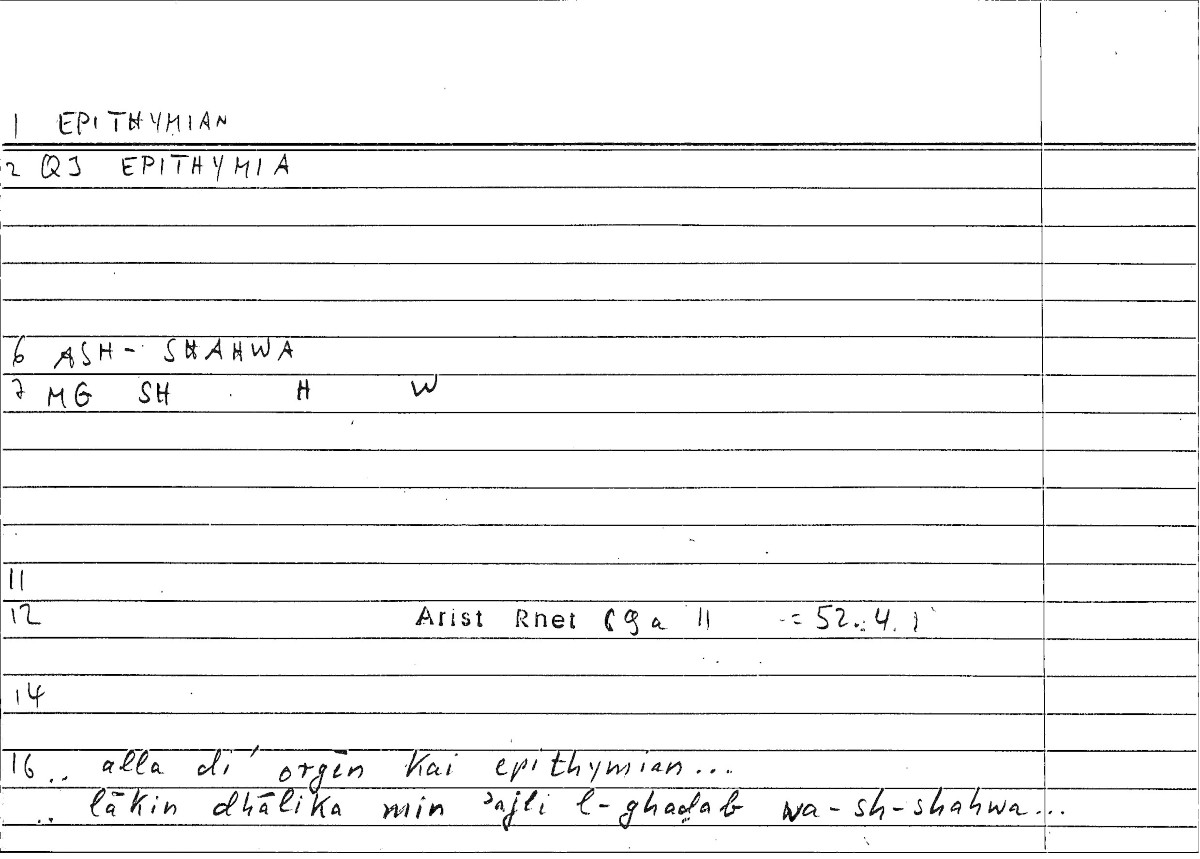 1 EPITHYMIAN
2 QJ EPITHYMIA
6 ASH- SHAHWA
7 MG SH H W
11
12 Arist Rhet 69 a 11 = 52. 4. 1
14
16 .. alla di' orgēn kai epithymian...
.. lākin dhālika min ʾajli l-ghaḍab wa-sh-shahwa...